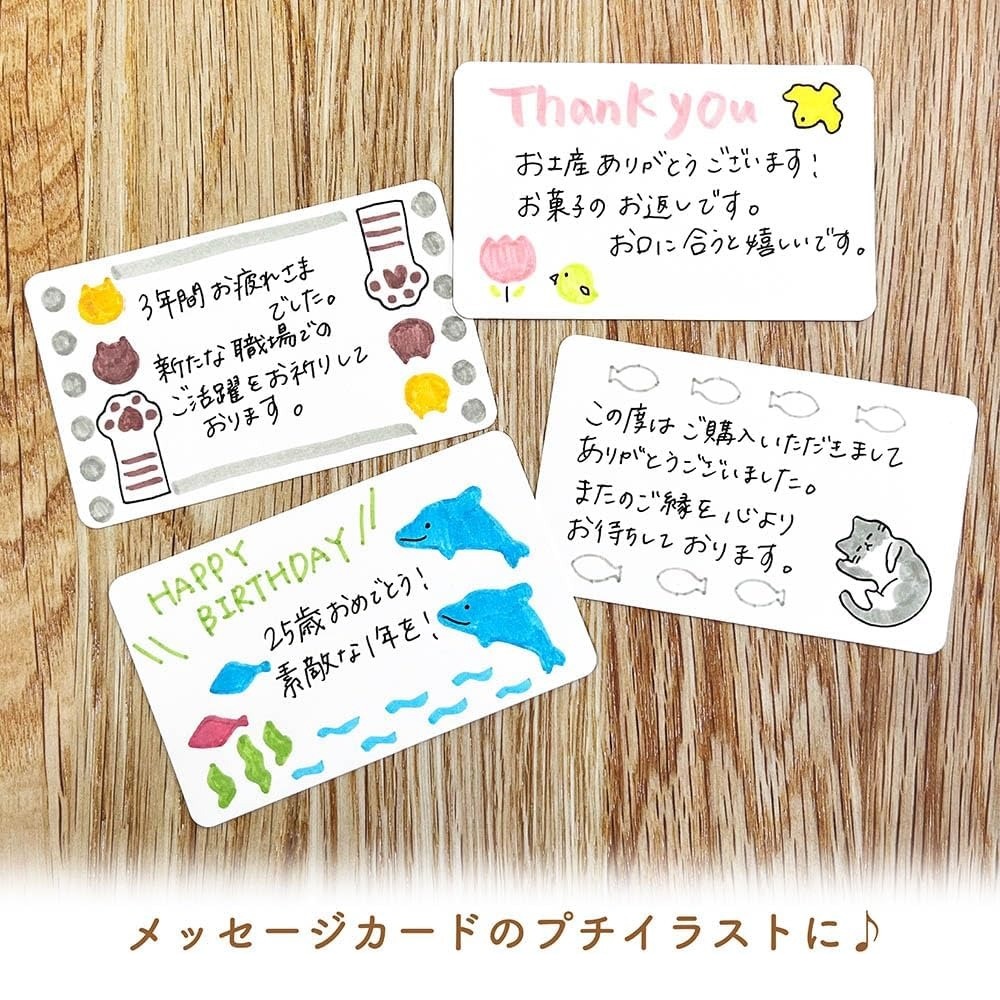 Thank you
お土産ありがとうございます!
お菓子のお返しです。
お口に合うと嬉しいです。
3年間お疲れさま
でした。
新たな職場での
ご活躍をお祈りして
おります。
この度はご購入いただきまして
ありがとうございました。
またのご縁を心より
お待ちしております。
HAPPY
BIRTHDAY
25歳おめでとう!
素敵な1年を!
メッセージカードのプチイラストに♪